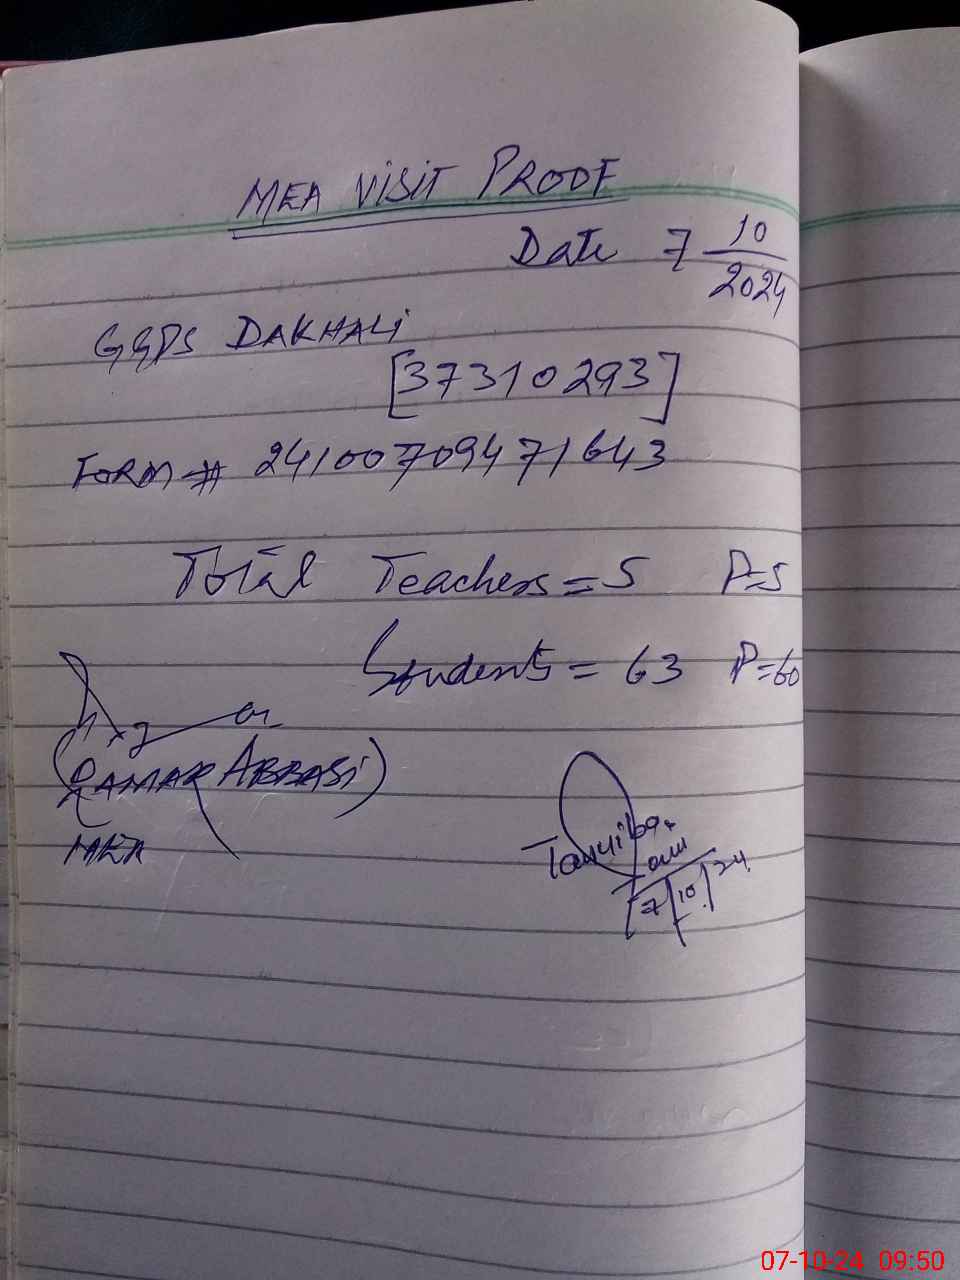 MEA VISIT PROOF
Date 7 10/2024
GGPS DAKHALi
[37310293]
FORM # 241007094771643
Total Teachers = 5 P=5
Students = 63 P=60
(QAMAR ABBASi)
MEA
7/10/24
07-10-24 09:50